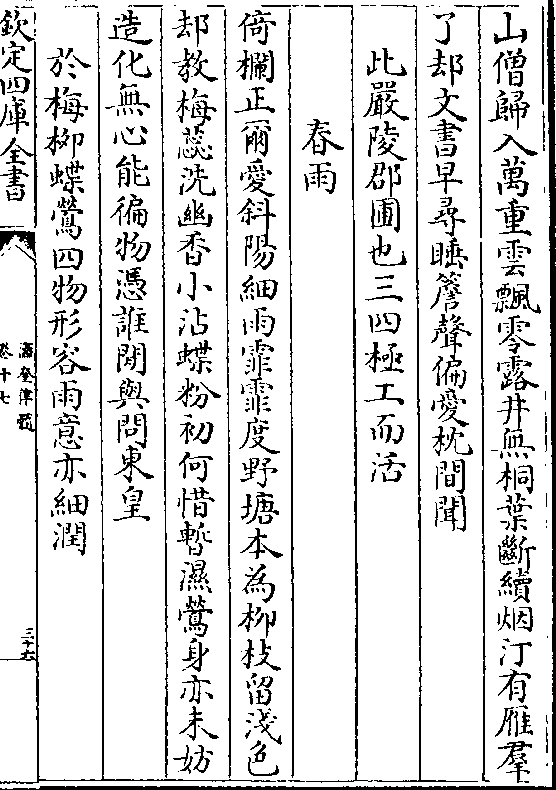 山僧歸入萬重雲飄零露井無桐葉斷續烟汀有雁羣
了却文書早尋睡簷聲偏愛枕間聞
此嚴陵郡圃也三四極工而活
春雨
倚欄正爾愛斜陽細雨霏霏度野塘本為柳枝留淺色
却教梅蕊洗幽香小沾蝶粉初何惜暫濕鶯身亦未妨
造化無心能徧物憑誰閑與問東皇
於梅柳蝶鶯四物形容雨意亦細潤
欽定四庫全書
瀛奎律髓
卷十七
三十六